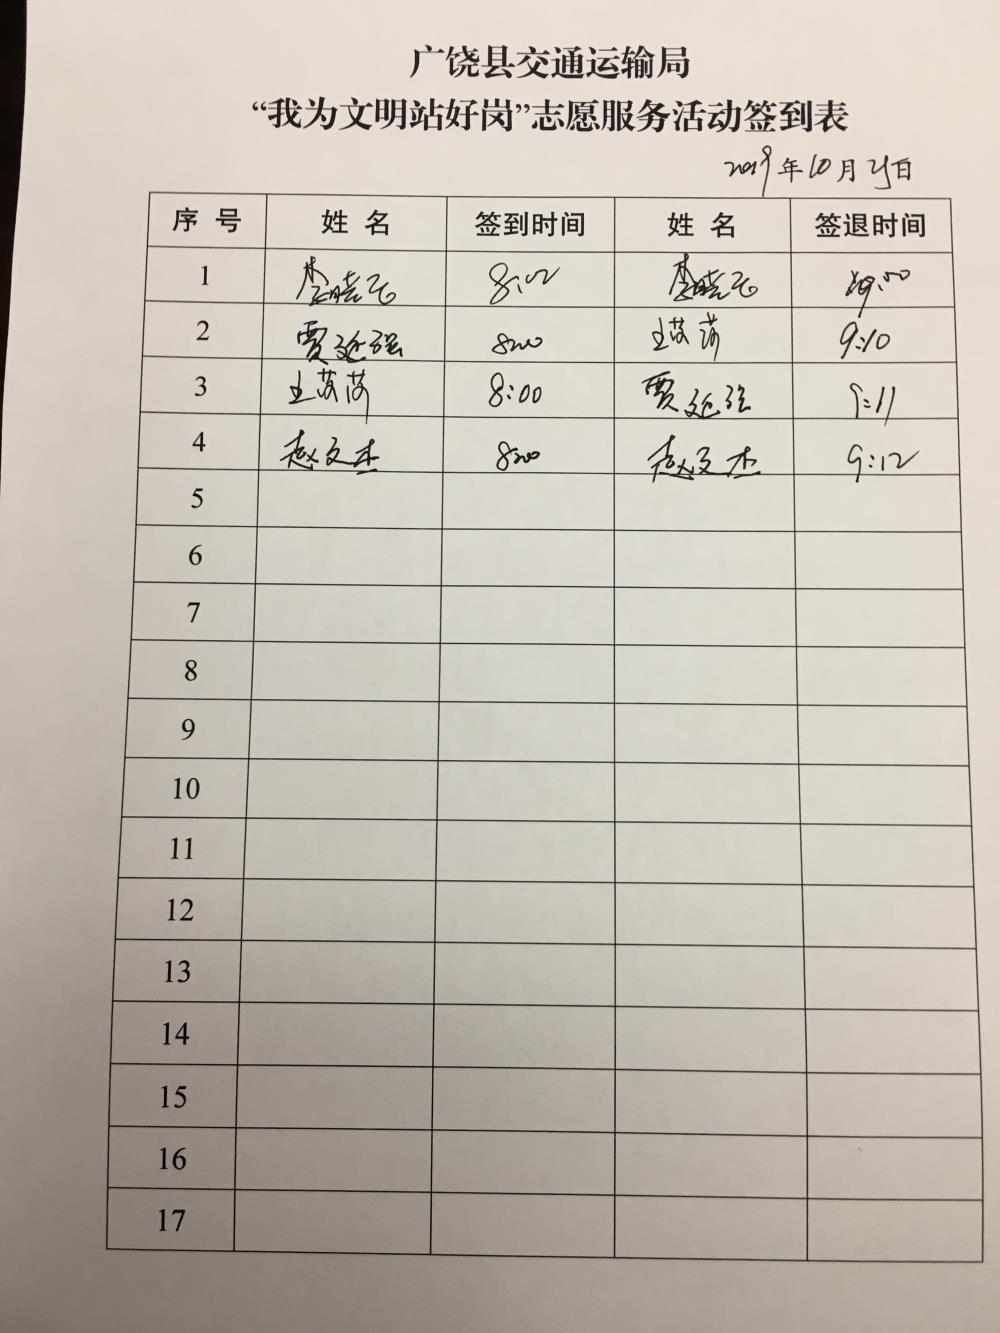 广饶县交通运输局
“我为文明站好岗”志愿服务活动签到表
2019年10月25日
序 号 姓 名 签到时间 姓 名 签退时间
1 李晓飞 8:02 李晓飞 9:00
2 贾延强 8:00 王苡茜 9:10
3 王苡茜 8:00 贾延强 9:11
4 赵文杰 8:00 赵文杰 9:12
5
6
7
8
9
10
11
12
13
14
15
16
17